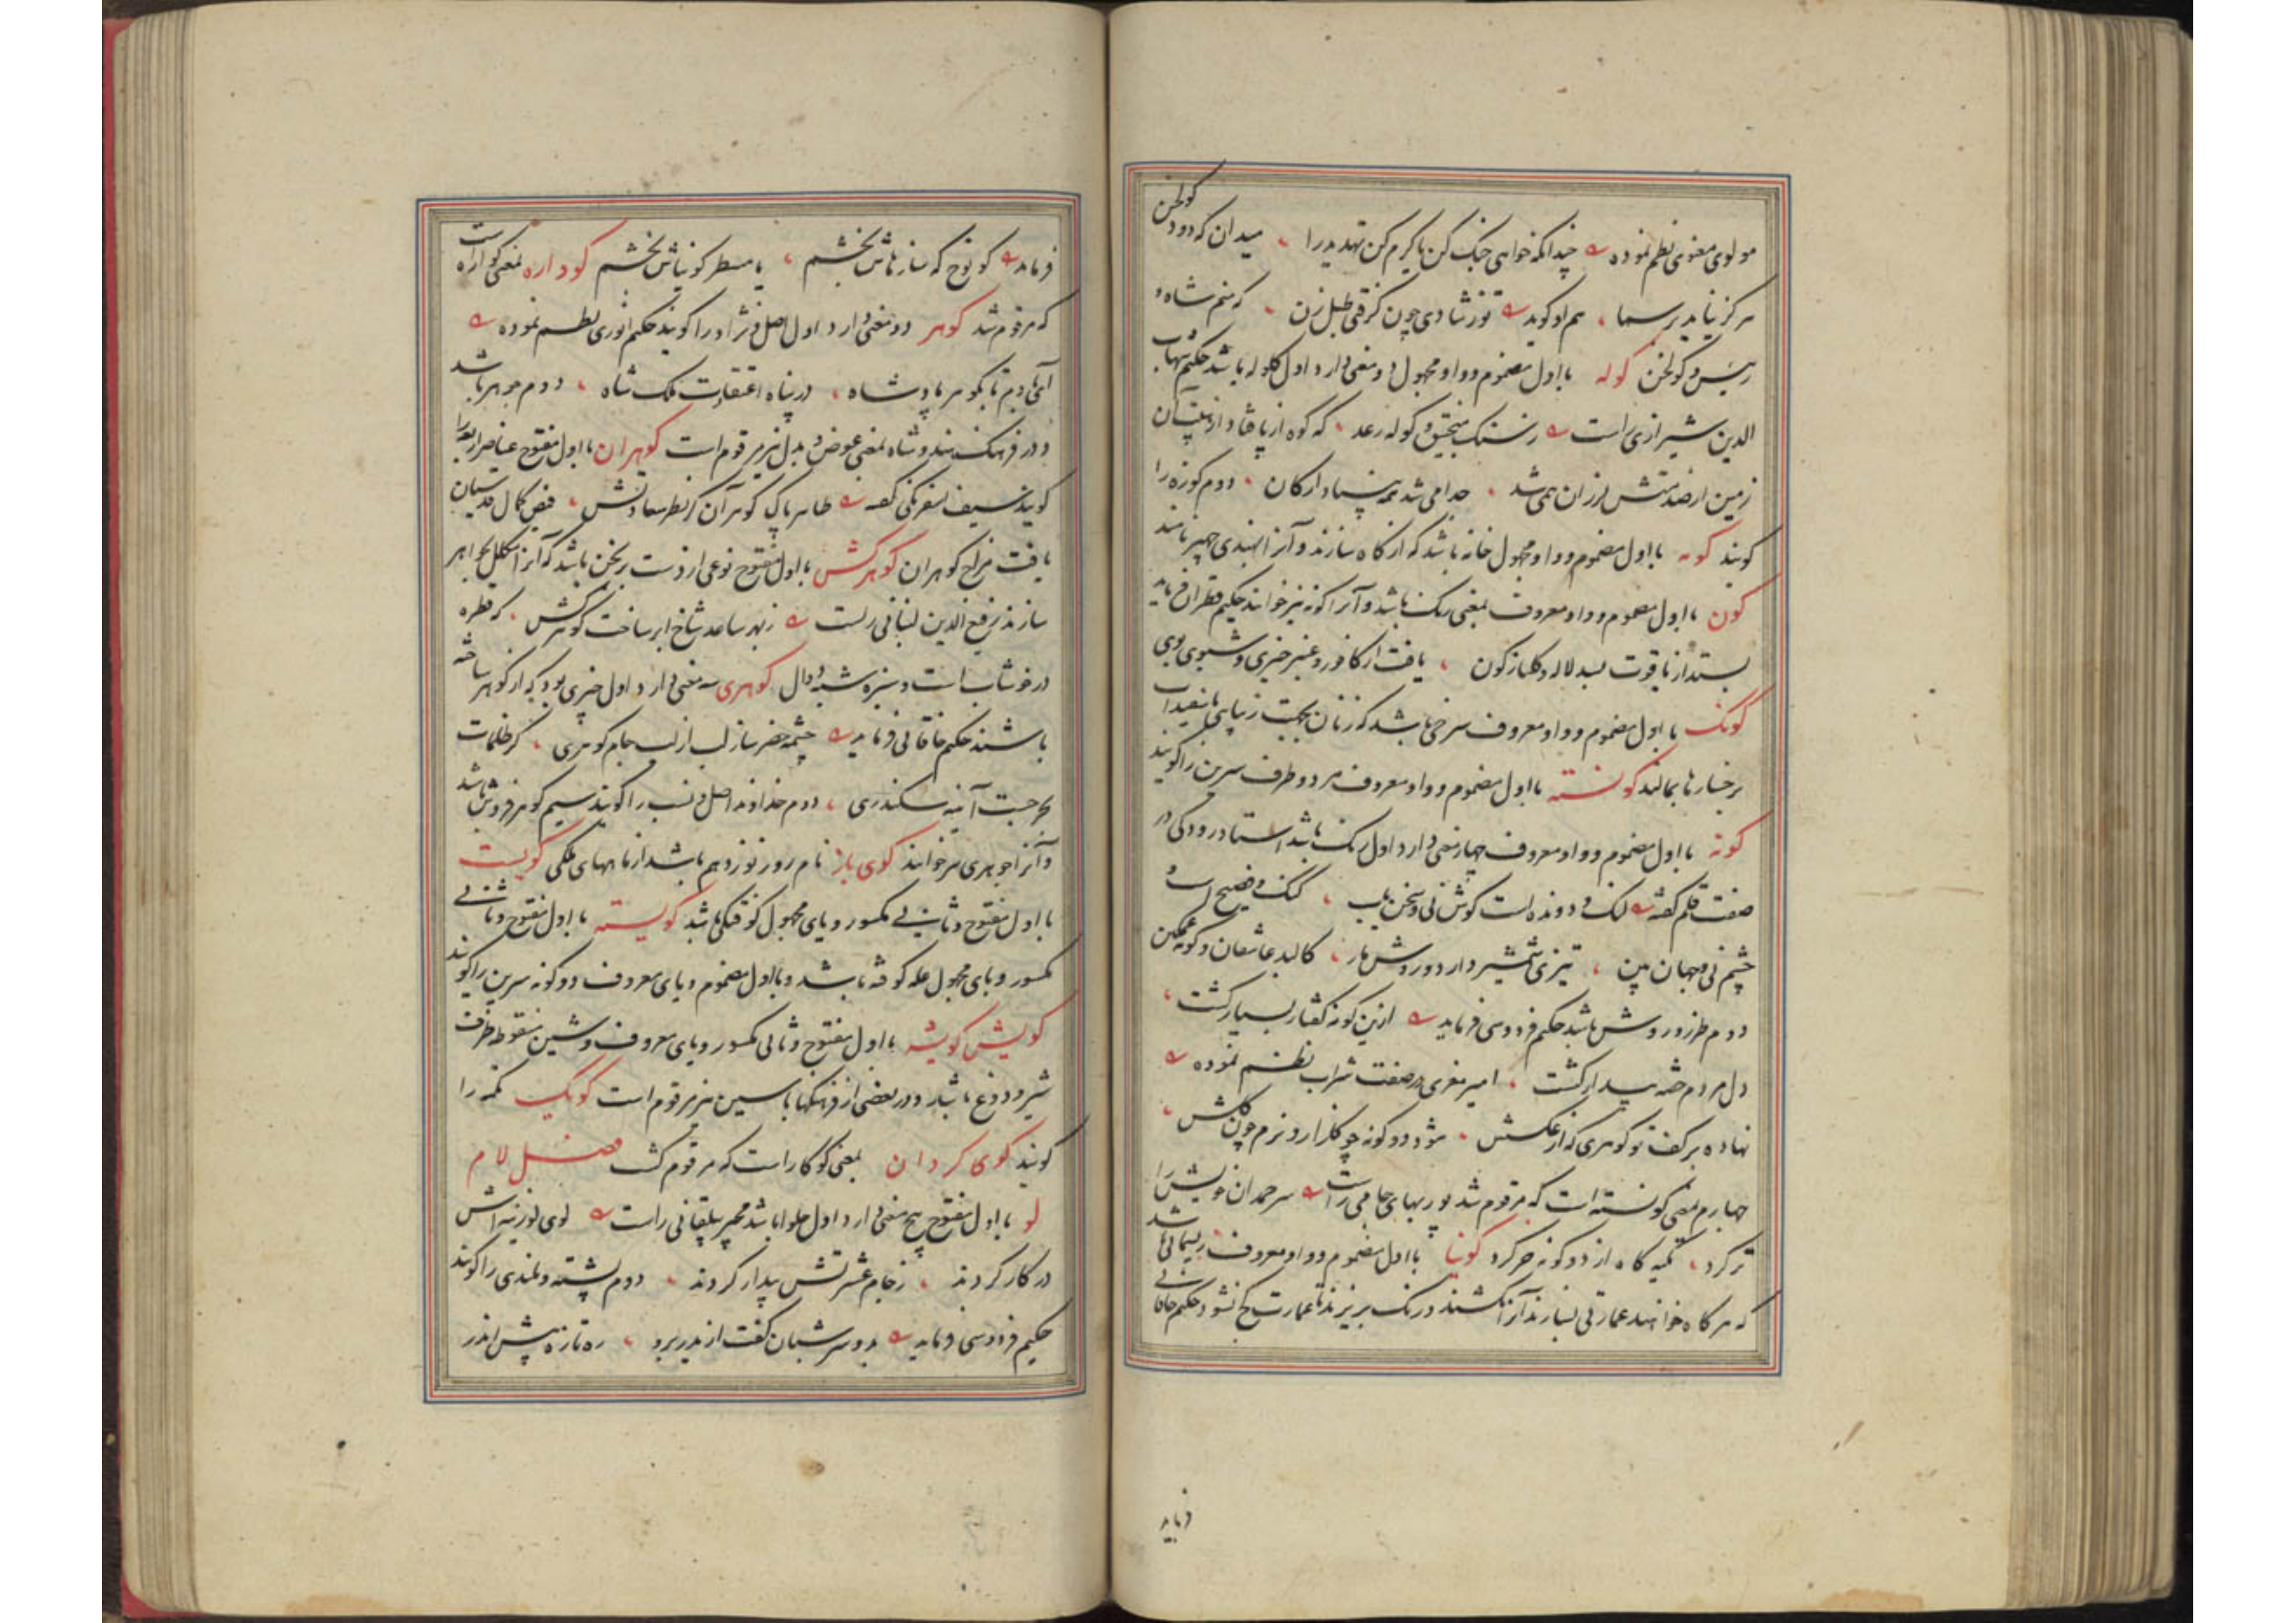 مولوی معنوی نظم نموده چندانکه خواهی جنگ کن یا گرم کن تهدید را میدان که دود گولخن
هرگز نیاید بر سما هم او گوید تو ز شادی چون گرفتی طبل زن که منم شاه و
رئیس گولخن گوله با اول مضموم و واو مجهول دو معنی دارد اول گلوله باشد حکیم شهاب
الدین شیرازی راست ز سنگ منجنیق و گوله رعد که کوه از پا فتاد از
زمین از لرزان همی شد جدا می شد ارکان دوم کوزه را
گویند گومه با اول مضموم و واو مجهول خانه باشد که از کاه سازند و آنرا بهندی چهپر نامند
گون با اول مضموم و واو معروف بمعنی رنگ باشد و آنرا گونه نیز خوانند حکیم قطران فرماید
بستد از یاقوت و بسد لاله و گلنار گون یافت از کافور و عنبر خیری و شببوی بوی
گونگ با اول مضموم و واو معروف سرخی باشد که زنان بجهت زیبایی با سفیداب
بر خسارها بمالند گونسته با اول مضموم و واو معروف هر دو طرف سرین را گویند
گونه با اول مضموم و واو معروف چهار معنی دارد اول رنگ باشد استاد رودکی در
صفت قلم گفته لنگ و دونده است گوش نی و سخن یاب گنگ و فصیح است و
چشم نی و جهان بین تیزی شمشیر دارد و روش مار کالبد عاشقان و گونه غمگین
دوم طرز و روش باشد حکیم فردوسی فرماید ازین گونه گفتار بسیار گشت
دل مردم خفته بیدار گشت امیر معزی در صفت شراب نظم نموده
نهاده بر کف تو گوهری که از عکسش شود دو گونه چو گلنار و بزم چون گلشن
چهارم بمعنی گونسته است که مرقوم شد پوربهای جامی راست سر خویش را
تر کرد تکیه گاه از دو گونه خر کرد گونیا با اول مضموم و واو معروف ریسمانی باشد
که هرگاه خواهند عمارتی بسازند آنرا بکشند و رنگ بریزند تا عمارت کج نشود حکیم خاقانی
فرماید
فرماید کو نوح که سازهاش بخشم یا مسطر گونیاش بخشم گوداره بمعنی گواره است
که مرقوم شد گوهر دو معنی دارد اول اصل و نژاد را گویند حکیم انوری نظم نموده
آمی و بگوهر پادشاه در پناه اعتقادت ملک شاه دوم جوهر باشد
و در فرهنگ هندوشاه بمعنی عوض و بدل نیز مرقوم است گوهران با اول مفتوح عناصر اربعه را
گویند سیف اسفرنگی گفته طاهر پاک گوهر آن کز نظر سعادتش فیض کمال قدسیان
یافت مزاج گوهران گوهرکش با اول مفتوح نوعی از دست برنجن باشد که آنرا مکلل بجواهر
سازند رفیع الدین لنبانی راست ز بهر ساعد شاخ ابر ساخت گوهرکش که قطره
در خوشاب است و سبزه شبه دال گوهری سه معنی دارد اول چیزی بود که از گوهر ساخته
باشند حکیم خاقانی فرماید چشمه خضر ساز لب از لب جام گوهری کز ظلمات
بحر جست آینه سکندری دوم خداوند اصل و نسب را گویند سیم گوهر فروش باشد
و آنرا جوهری نیز خوانند گوی باز نام روز نوزدهم باشد از ماههای ملکی گویست
با اول مفتوح و ثانی مکسور و یای مجهول کوفتگی باشد گویسته با اول مفتوح و ثانی
مکسور و یای مجهول غله کوفته باشد و با اول مضموم و یای معروف دو گونه سرین را گویند
گویش گویشه با اول مفتوح و ثانی مکسور و یای معروف و شین منقوطه ظرف
شیر و دوغ باشد و در بعضی از فرهنگها با سین نیز مرقوم است گویک تکمه را
گویند گوی گردان بمعنی گوگار است که مرقوم گشت فصل لام
لو با اول مفتوح پنج معنی دارد اول حلوا باشد مجیر بیلقانی راست لوی لوزینه اش
در کار کردند ز جام عشرتش بیدار کردند دوم پشته و بلندی را گویند
حکیم فردوسی فرماید بدو سر شبان گفت از ایدر برو ره تازه پیش اندر